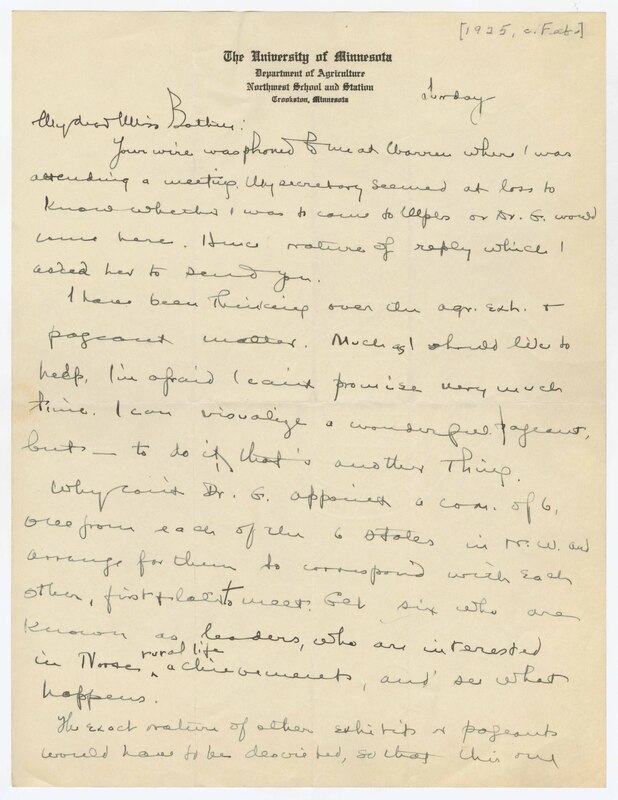 [1925, c. Feb.]
The University of Minnesota
Department of Agriculture
Northwest School and Station
Crookston, Minnesota
Sunday
My dear Miss
Your wire was phoned to me at Warren where I was
attending a meeting. My secretary seemed at loss to
know whether I was to come to Mpls or Dr. G. would
come here. Hence nature of reply which I
asked her to send you.
I have been thinking over the agr. exh. +
pageant matter. Much as I should like to
help, I'm afraid I can't promise very much
time. I can visualize a wonderful pageant,
but — to do it, that's another thing.
Why can't Dr. G. appoint a com. of 6,
one from each of the 6 states in N.W. and
arrange for them to correspond with each
other, first + later to meet. Get six who are
known as leaders, who are interested
in Norse rural life achievements, and see what
happens.
The exact nature of other exhibits or pageants
would have to be so that this one